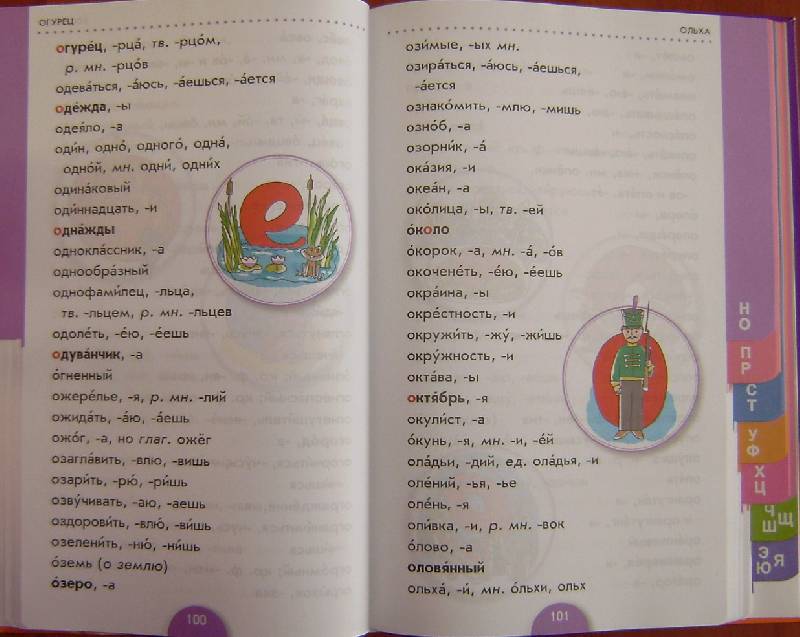 ОГУРЕЦ
огуре́ц, -рца́, тв. -рцо́м,
р. мн. -рцо́в
одева́ться, -а́юсь, -а́ешься, -а́ется
оде́жда, -ы
одея́ло, -а
оди́н, одно́, одного́, одна́,
одно́й, мн. одни́, одни́х
одина́ковый
оди́ннадцать, -и
одна́жды
однокла́ссник, -а
однообра́зный
однофами́лец, -льца,
тв. -льцем, р. мн. -льцев
одоле́ть, -е́ю, -е́ешь
одува́нчик, -а
о́гненный
ожере́лье, -я, р. мн. -лий
ожида́ть, -а́ю, -а́ешь
ожо́г, -а, но глаг. ожёг
озагла́вить, -влю, -вишь
озари́ть, -рю́, -ри́шь
озву́чивать, -аю, -аешь
оздорови́ть, -влю́, -ви́шь
озелени́ть, -ню́, -ни́шь
о́земь (о землю)
о́зеро, -а
е
100
ОЛЬХА
ози́мые, -ых мн.
озира́ться, -а́юсь, -а́ешься,
-а́ется
ознако́мить, -млю, -мишь
озно́б, -а
озорни́к, -а́
ока́зия, -и
океа́н, -а
око́лица, -ы, тв. -ей
о́коло
о́корок, -а, мн. -а́, -о́в
окочене́ть, -е́ю, -е́ешь
окра́ина, -ы
окре́стность, -и
окружи́ть, -жу́, -жи́шь
окру́жность, -и
окта́ва, -ы
октя́брь, -я́
окули́ст, -а
о́кунь, -я, мн. -и, -е́й
ола́дьи, -дий, ед. ола́дья, -и
оле́ний, -ья, -ье
оле́нь, -я
оли́вка, -и, р. мн. -вок
о́лово, -а
оловя́нный
ольха́, -и́, мн. о́льхи, ольх
О
101
Н
О
П
Р
С
Т
У
Ф
Х
Ц
Ч
Щ
Ш
Э
Я
Ю